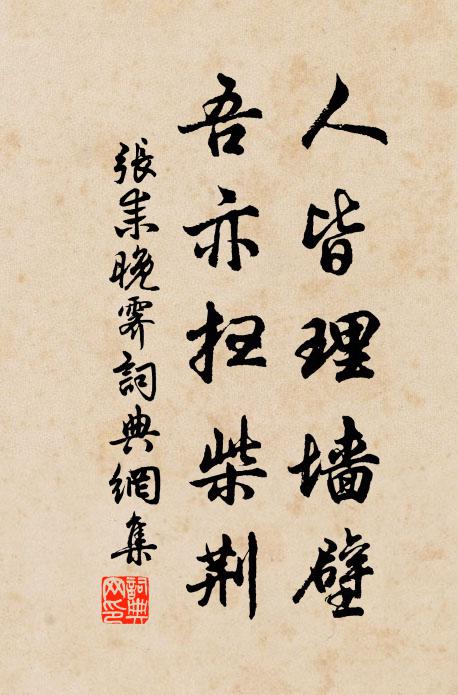 人皆理墙壁
吾亦扫柴荆
張耒晚霽詞典網集
詞典网印